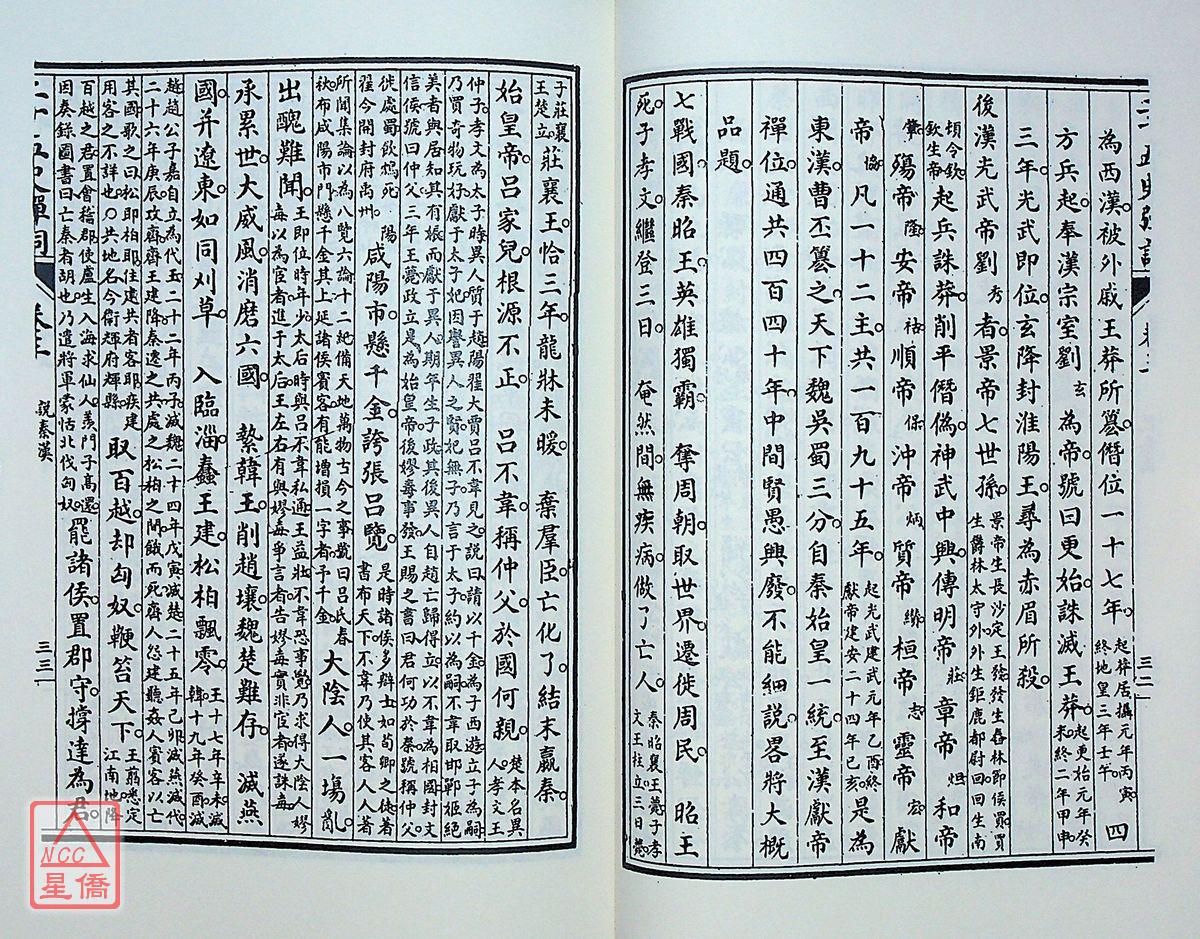 二十五史彈詞 卷三 三二
為西漢被外戚王莽所篡僭位一十七年。起莽居攝元年丙寅終地皇三年壬午 四
方兵起奉漢宗室劉玄為帝號曰更始誅滅王莽。起更始元年癸未終二年甲申
三年光武即位玄降封淮陽王尋為赤眉所殺。
後漢光武帝劉秀者景帝七世孫。景帝生長沙定王發發生舂林郎侯買買生爵林太守外外生鉅鹿都尉回回生南
頓今欽欽生帝 起兵誅莽削平僭偽神武中興傳明帝莊章帝炟和帝
肇殤帝隆安帝祜順帝保沖帝炳質帝纘桓帝志靈帝宏獻
帝協凡一十二主共一百九十五年。起光武建武元年乙酉終獻帝建安二十四年己亥 是為
東漢曹丕篡之天下魏吳蜀三分自秦始皇一統至漢獻帝
禪位通共四百四十年中間賢愚興廢不能細說畧將大概
品題。
七戰國秦昭王英雄獨霸 奪周朝取世界遷徙周民 昭王
死子孝文繼登三日 奄然間無疾病做了亡人 秦昭襄王薨子孝文王柱立三日薨
子莊襄王楚立 莊襄王恰三年龍牀未暖 棄羣臣亡化了結末嬴秦
始皇帝呂家兒根源不正 呂不韋稱仲父於國何親 楚本名異人孝文王
仲子孝文為太子時異人質于趙陽翟大賈呂不韋見之說曰請以千金為子西遊立子為嗣
乃買奇物玩好獻于太子妃因譽異人之賢妃無子乃言于太子約以為嗣不韋取邯鄲姬絕
美者與居知其有娠而獻于異人期年生子政其後異人自趙亡歸得立以不韋為相國封文
信侯號曰仲父三年王薨政立是為始皇帝後嫪毐事發王賜之書曰君何功於秦號稱仲父
徙處蜀飲鴆死 陽翟今開封府禹州 咸陽市懸千金誇張呂覽 是時諸侯多辯士如荀卿之徒著書布天下不韋乃使其客人人著
所聞集論以為八覽六論十二紀備天地萬物古今之事號曰呂氏春
秋布咸陽市門懸千金其上延諸侯賓客有能增損一字者予千金 大陰人一場亂
出醜難聞 王即位時年少太后時時與呂不韋私通王益壯不韋恐事覺乃求得大陰人嫪毐以為宦者進于太后王左右有與嫪毐爭言者告嫪毐實非宦者遂誅毐
承累世大威風消磨六國 縶韓王削趙壤魏楚難存 滅燕
國并遼東如同刈草 入臨淄蠢王建松柏飄零 王十七年辛未滅韓十九年癸酉滅
趙趙公子嘉自立為代王二十二年丙子滅魏二十四年戊寅滅楚二十五年己卯滅燕滅代
二十六年庚辰攻齊齊王建降秦遷之共處之松柏之間餓而死齊人怨建聽姦人賓客以亡
其國歌之曰松耶柏耶住建共者客耶疾建
用客之不詳也〇共地名今衞輝府輝縣 取百越却匈奴鞭笞天下 王翦悉定江南地降
百越之君置會稽郡使盧生入海求仙人羨門子高還
因奏錄圖書曰亡秦者胡也乃遣將軍蒙恬北伐匈奴 罷諸侯置郡守撐達為君
二十五史彈詞 卷三 說秦漢 三三
NCC
星僑